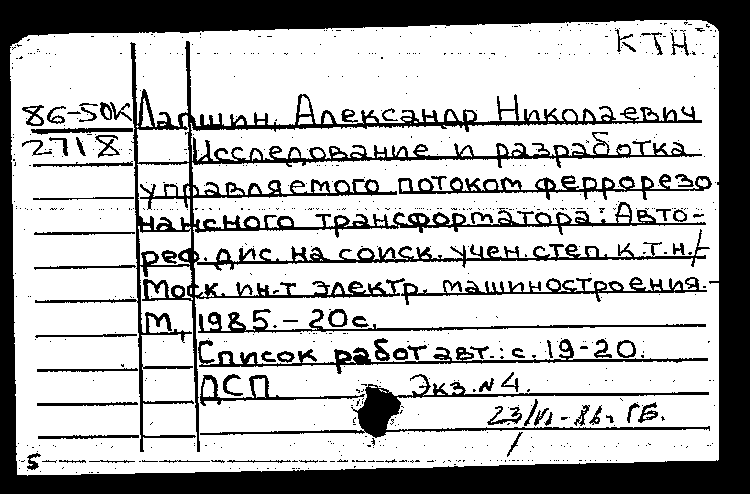 КТН.
86-50К Лапшин, Александр Николаевич
2718 Исследование и разработка
управляемого потоком феррорезо-
нансного трансформатора: Авто-
реф. дис. на соиск. учен. степ. к.т.н./-
Моск. ин-т электр. машиностроения.-
М., 1985.-20с.
Список работ авт.: с. 19-20.
ДСП. Экз.№4.
23/VI-86г. ГБ.
5